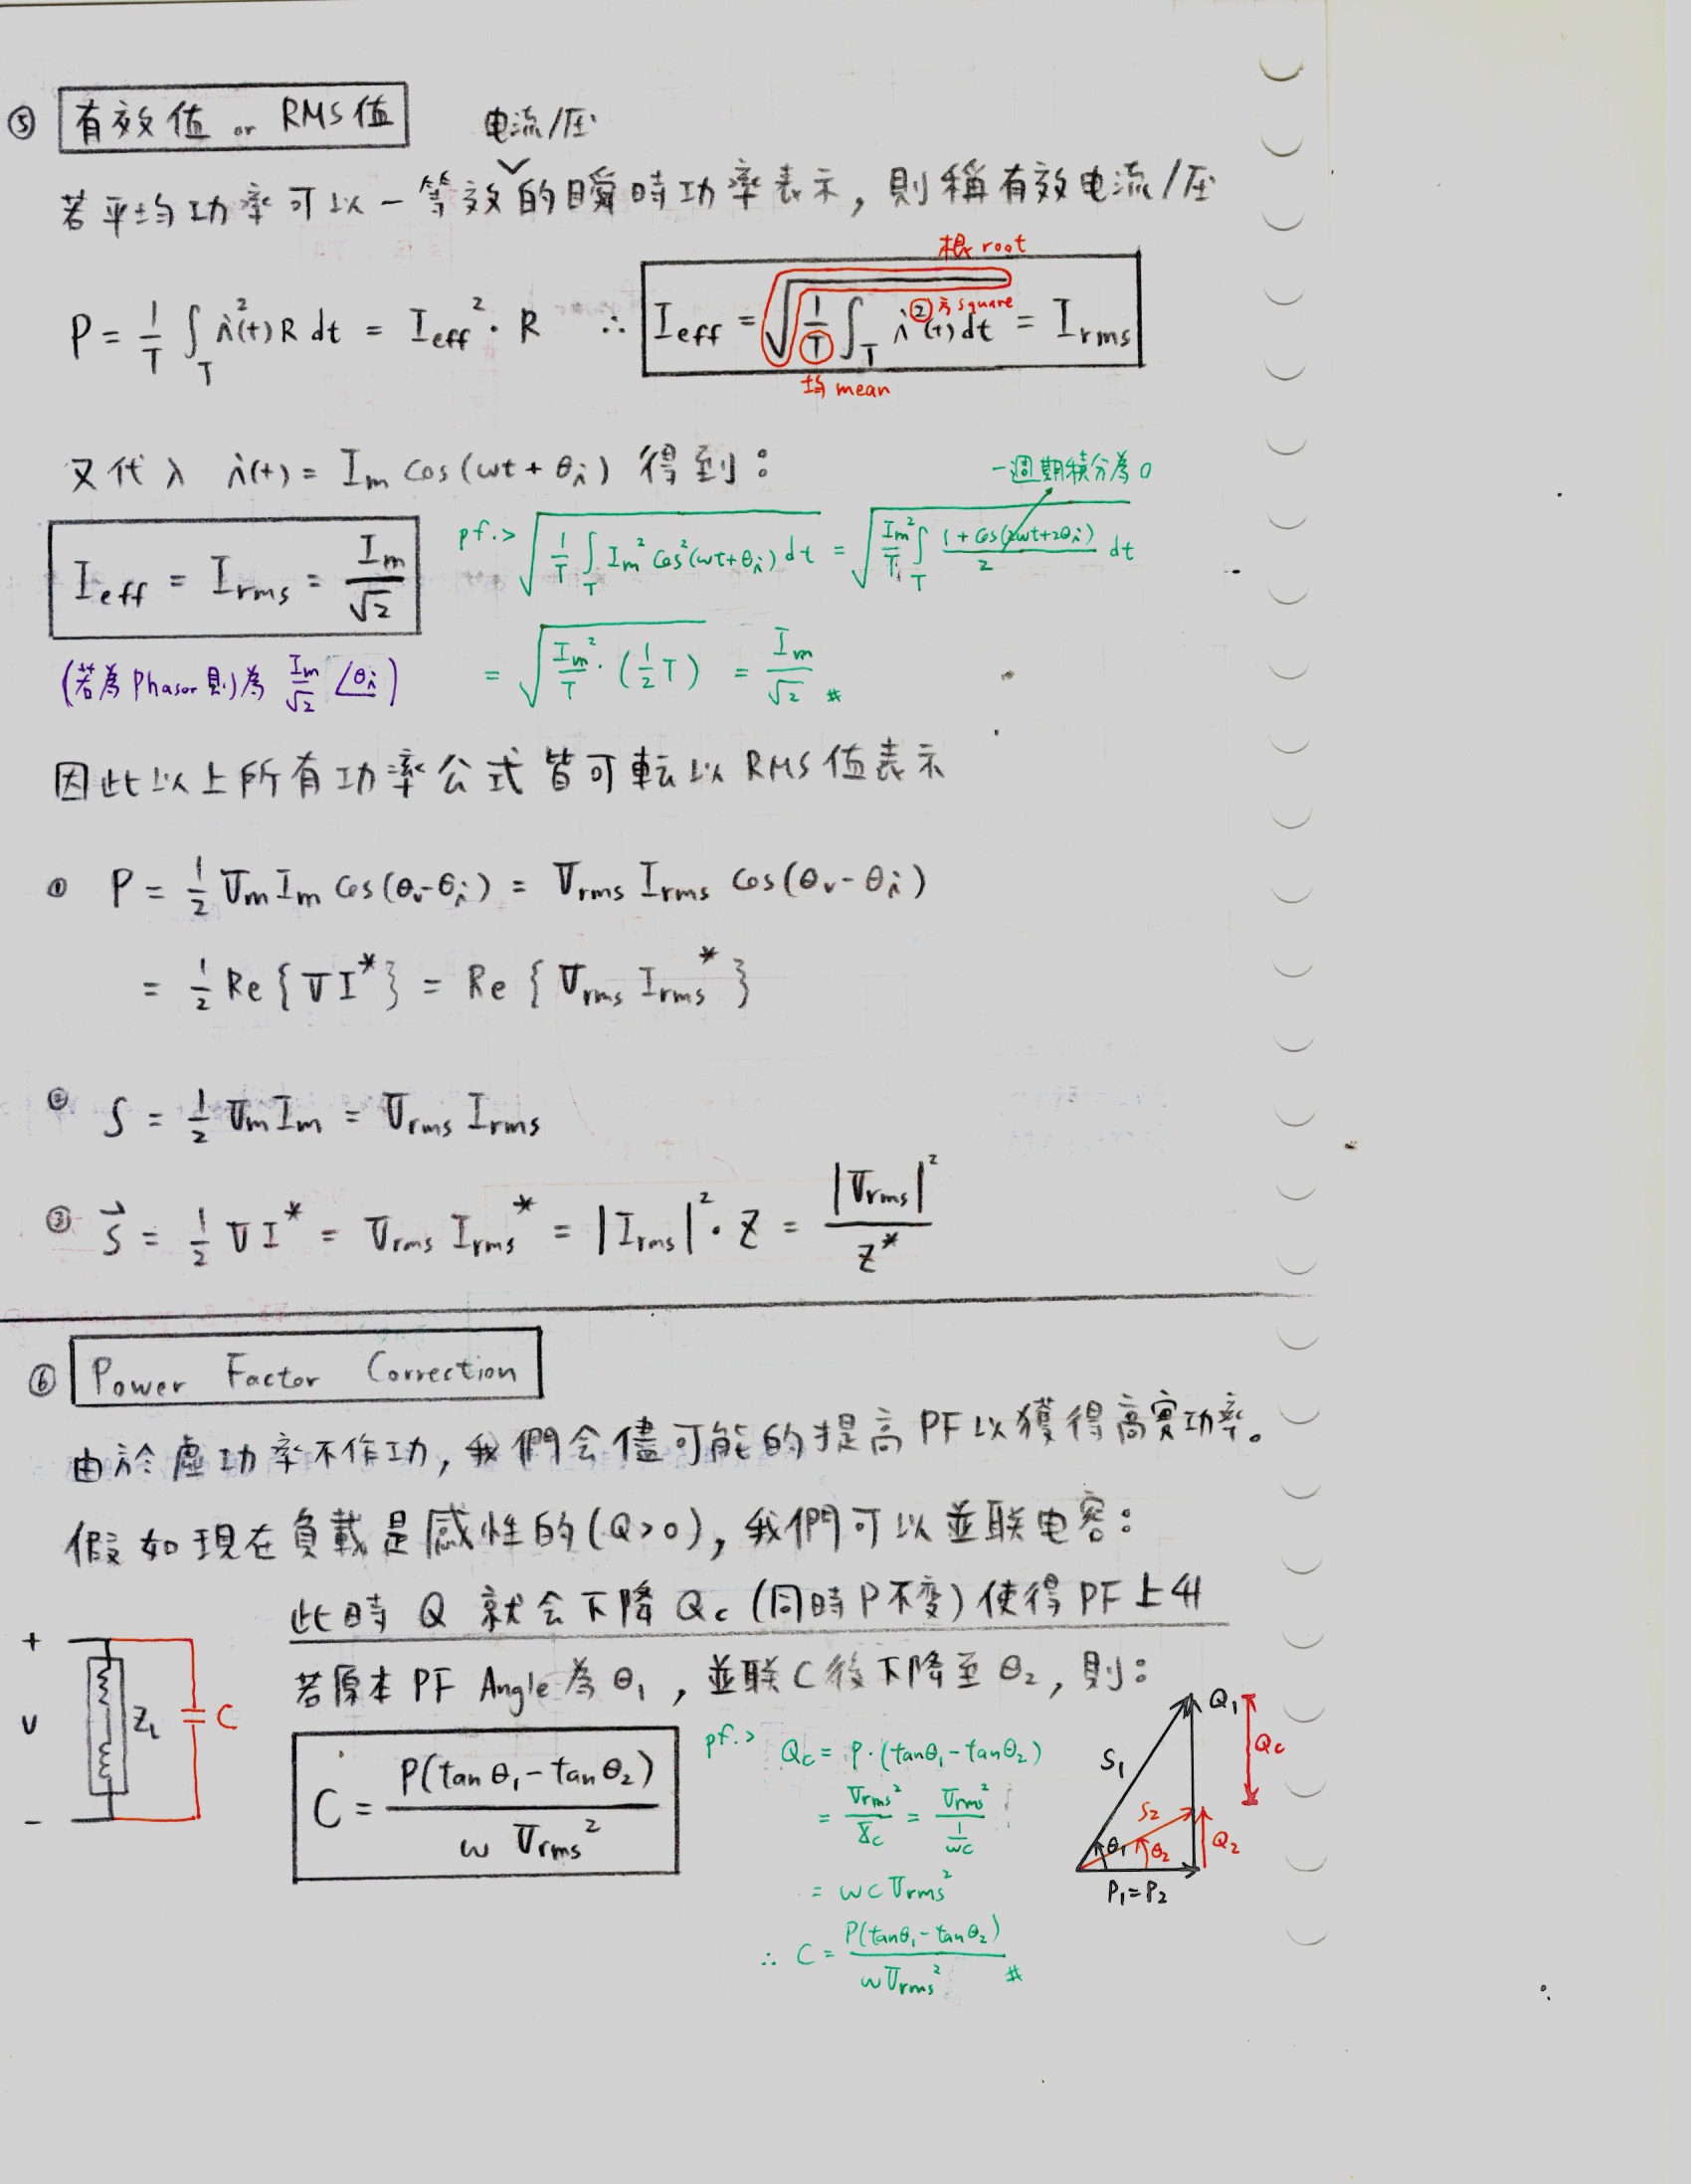 ⑤ 有效值 or RMS值
电流/压
若平均功率可以一等效的瞬時功率表示，則稱有效电流/压
P = 1/T ∫_T i²(t) R dt = I_eff² · R ∴ I_eff = √(1/T ∫_T i²(t) dt) = I_rms
根 root
方 square
均 mean
又代入 i(t) = I_m Cos(ωt + θ_i) 得到：
一週期積分為0
I_eff = I_rms = I_m/√2
pf.> √(1/T ∫_T I_m² Cos²(ωt+θ_i) dt) = √(I_m²/T ∫_T (1 + Cos(2ωt+2θ_i))/2 dt)
= √(I_m²/T · (1/2 T)) = I_m/√2 #
(若為 Phasor 則為 I_m/√2 ∠θ_i)
因此以上所有功率公式皆可転以 RMS 值表示
① P = 1/2 V_m I_m Cos(θ_v-θ_i) = V_rms I_rms Cos(θ_v-θ_i)
= 1/2 Re{VI*} = Re{V_rms I_rms*}
② S = 1/2 V_m I_m = V_rms I_rms
③ S⃗ = 1/2 VI* = V_rms I_rms* = |I_rms|² · Z = |V_rms|²/Z*
⑥ Power Factor Correction
由於虛功率不作功，我們会儘可能的提高 PF 以獲得高實功率。
假如現在負載是感性的(Q>0)，我們可以並联电容：
此時 Q 就会下降 Qc (同時P不変) 使得 PF 上升
若原本 PF Angle 為 θ₁，並联C後下降至 θ₂，則：
+
v
-
Z_L
C
C = P(tanθ₁ - tanθ₂) / (ω V_rms²)
pf.> Qc = P·(tanθ₁ - tanθ₂)
= V_rms²/X_c = V_rms²/(1/ωC)
= ωC V_rms²
∴ C = P(tanθ₁ - tanθ₂) / (ωV_rms²) #
Q₁
S₁
Qc
S₂
Q₂
θ₁
θ₂
P₁=P₂